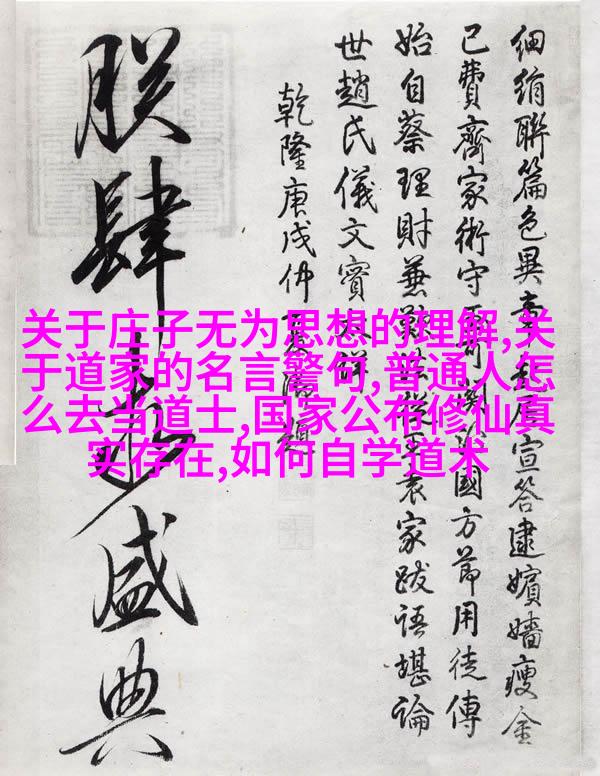 細絹聯篇色異宣答逮嬪嬙瘦金
已費齊家術守國方節用徒傳
始自蔡理財兼難從袁家跋語堪論
世趙氏儀文實詳
乾隆庚戌仲題
朕肆盛典
关于庄子无为思想的理解,关
于道家的名言警句,普通人怎
么去当道士,国家公布修仙真
实存在,如何自学道术